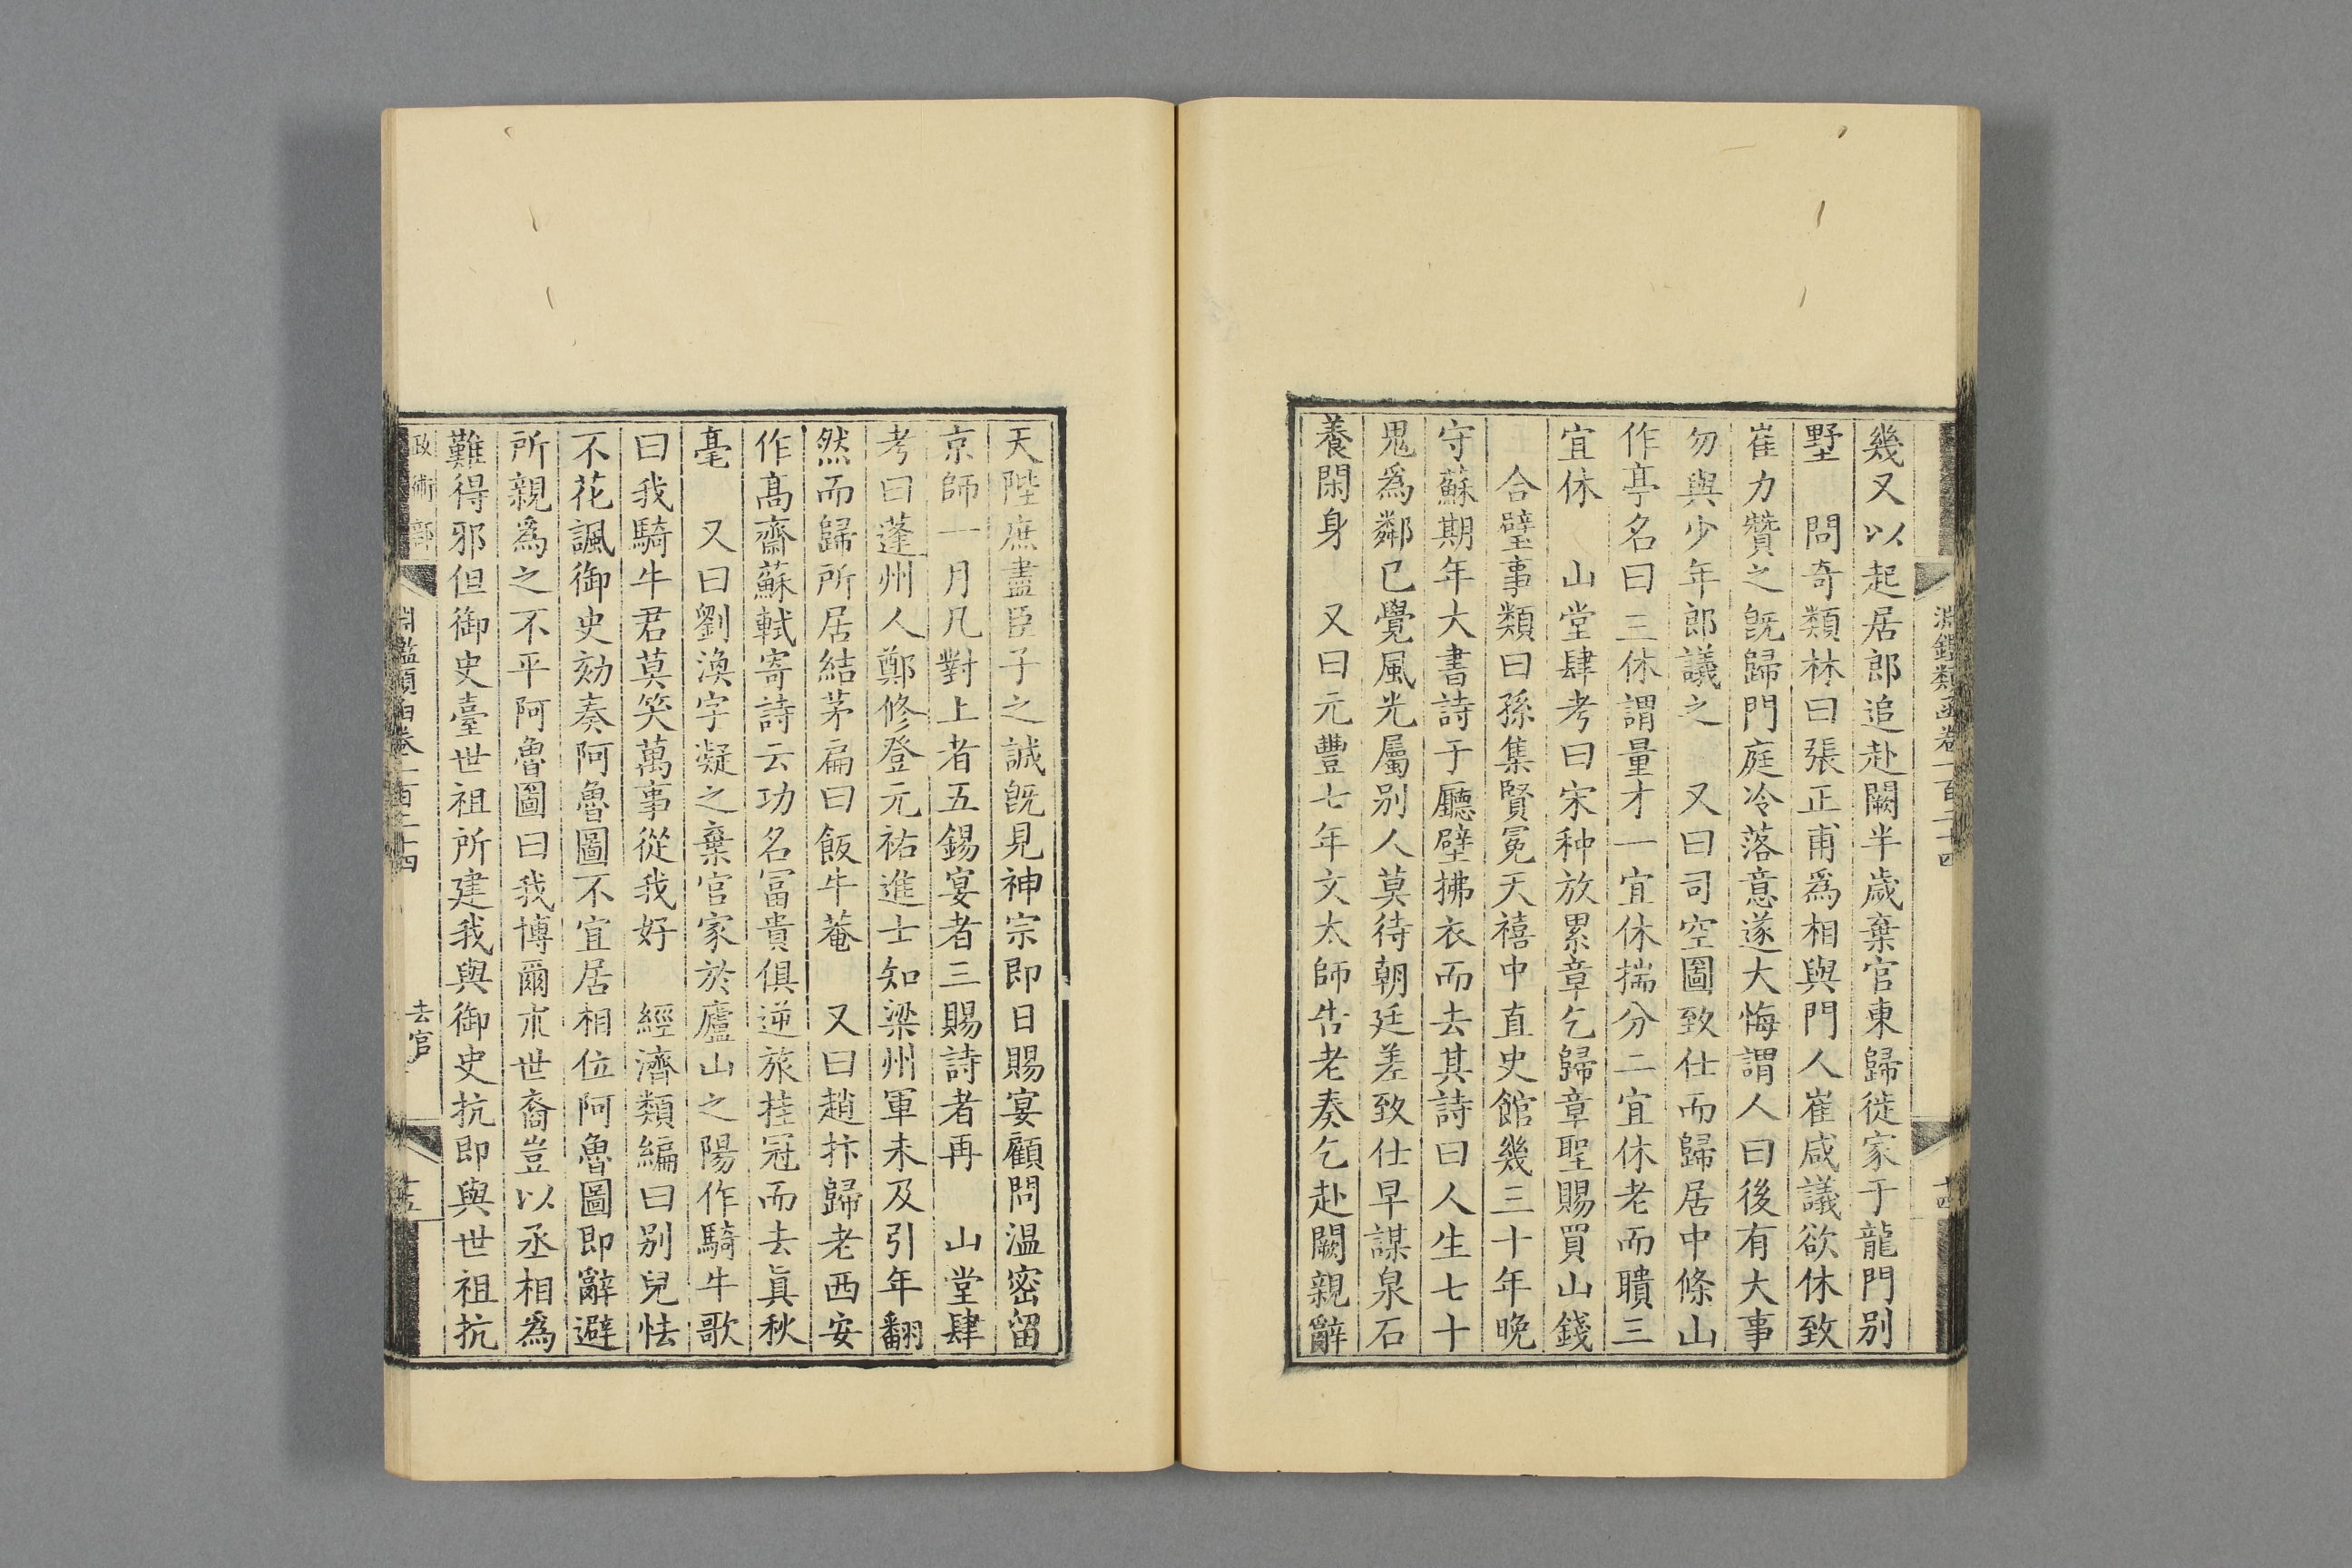 淵鑑類函卷一百二十四
十四
幾又以起居郎追赴闕半歲棄官東歸徙家于龍門别
墅　問奇類林曰張正甫爲相與門人崔咸議欲休致
崔力贊之旣歸門庭冷落意遂大悔謂人曰後有大事
勿與少年郎議之　又曰司空圖致仕而歸居中條山
作亭名曰三休謂量才一宜休揣分二宜休老而聵三
宜休　山堂肆考曰宋种放累章乞歸章聖賜買山錢
合璧事類曰孫集賢冕天禧中直史館幾三十年晚
守蘇期年大書詩于廳壁拂衣而去其詩曰人生七十
鬼爲鄰已覺風光屬别人莫待朝廷差致仕早謀泉石
養閑身　又曰元豐七年文太師告老奏乞赴闕親辭
天陛庶盡臣子之誠旣見神宗即日賜宴顧問溫密留
京師一月凡對上者五錫宴者三賜詩者再　山堂肆
考曰蓬州人鄭修登元祐進士知梁州軍未及引年翻
然而歸所居結茅扁曰飯牛菴　又曰趙抃歸老西安
作高齋蘇軾寄詩云功名冨貴俱逆旅挂冠而去眞秋
毫　又曰劉渙字凝之棄官家於廬山之陽作騎牛歌
曰我騎牛君莫笑萬事從我好　經濟類編曰别兒怯
不花諷御史劾奏阿魯圖不宜居相位阿魯圖即辭避
所親爲之不平阿魯圖曰我博爾朮世裔豈以丞相爲
難得邪但御史臺世祖所建我與御史抗即與世祖抗
政術部
淵鑑類函卷一百二十四
去官
十五